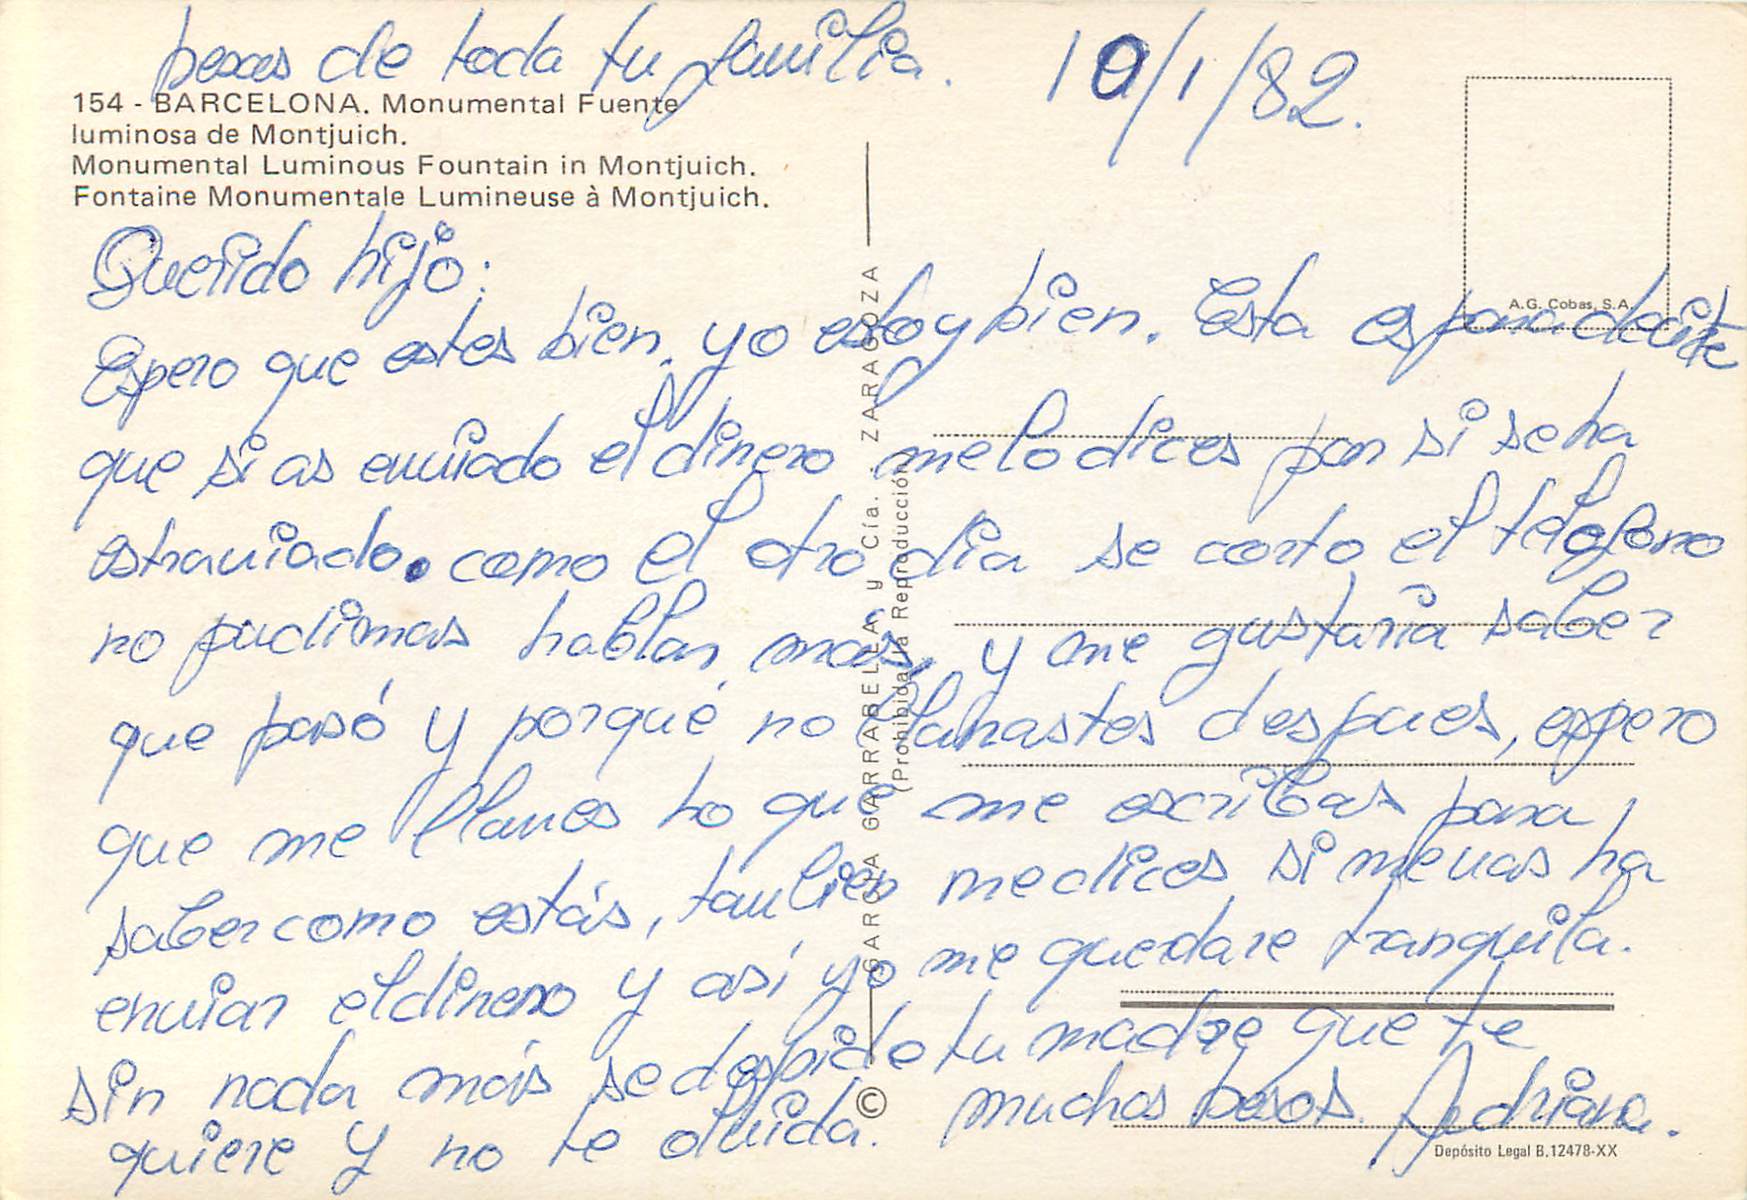 besos de toda tu familia. 10/1/82.
154 - BARCELONA. Monumental Fuente
luminosa de Montjuich.
Monumental Luminous Fountain in Montjuich.
Fontaine Monumentale Lumineuse à Montjuich.
A.G. Cobas, S.A.
Querido hijo:
Espero que estes bien, yo estoy bien. Esta es para decirte
que si as enviado el dinero me lo dices por si se ha
estraviado. como el otro dia se corto el telefono
no pudimos hablar mas, y me gustaria saber
que pasó y porqué no llamastes despues, espero
que me llames ho que me escribas para
saber como estás, tambien me dices si me vas ha
enviar el dinero y así yo me quedare tranquila.
sin nada más se despide tu madre que te
quiere y no te olvida. muchos besos. Adriana.
GARCIA GARRABELLA y Cía. - ZARAGOZA
(Prohibida la Reproducción)
©
Depósito Legal B.12478-XX